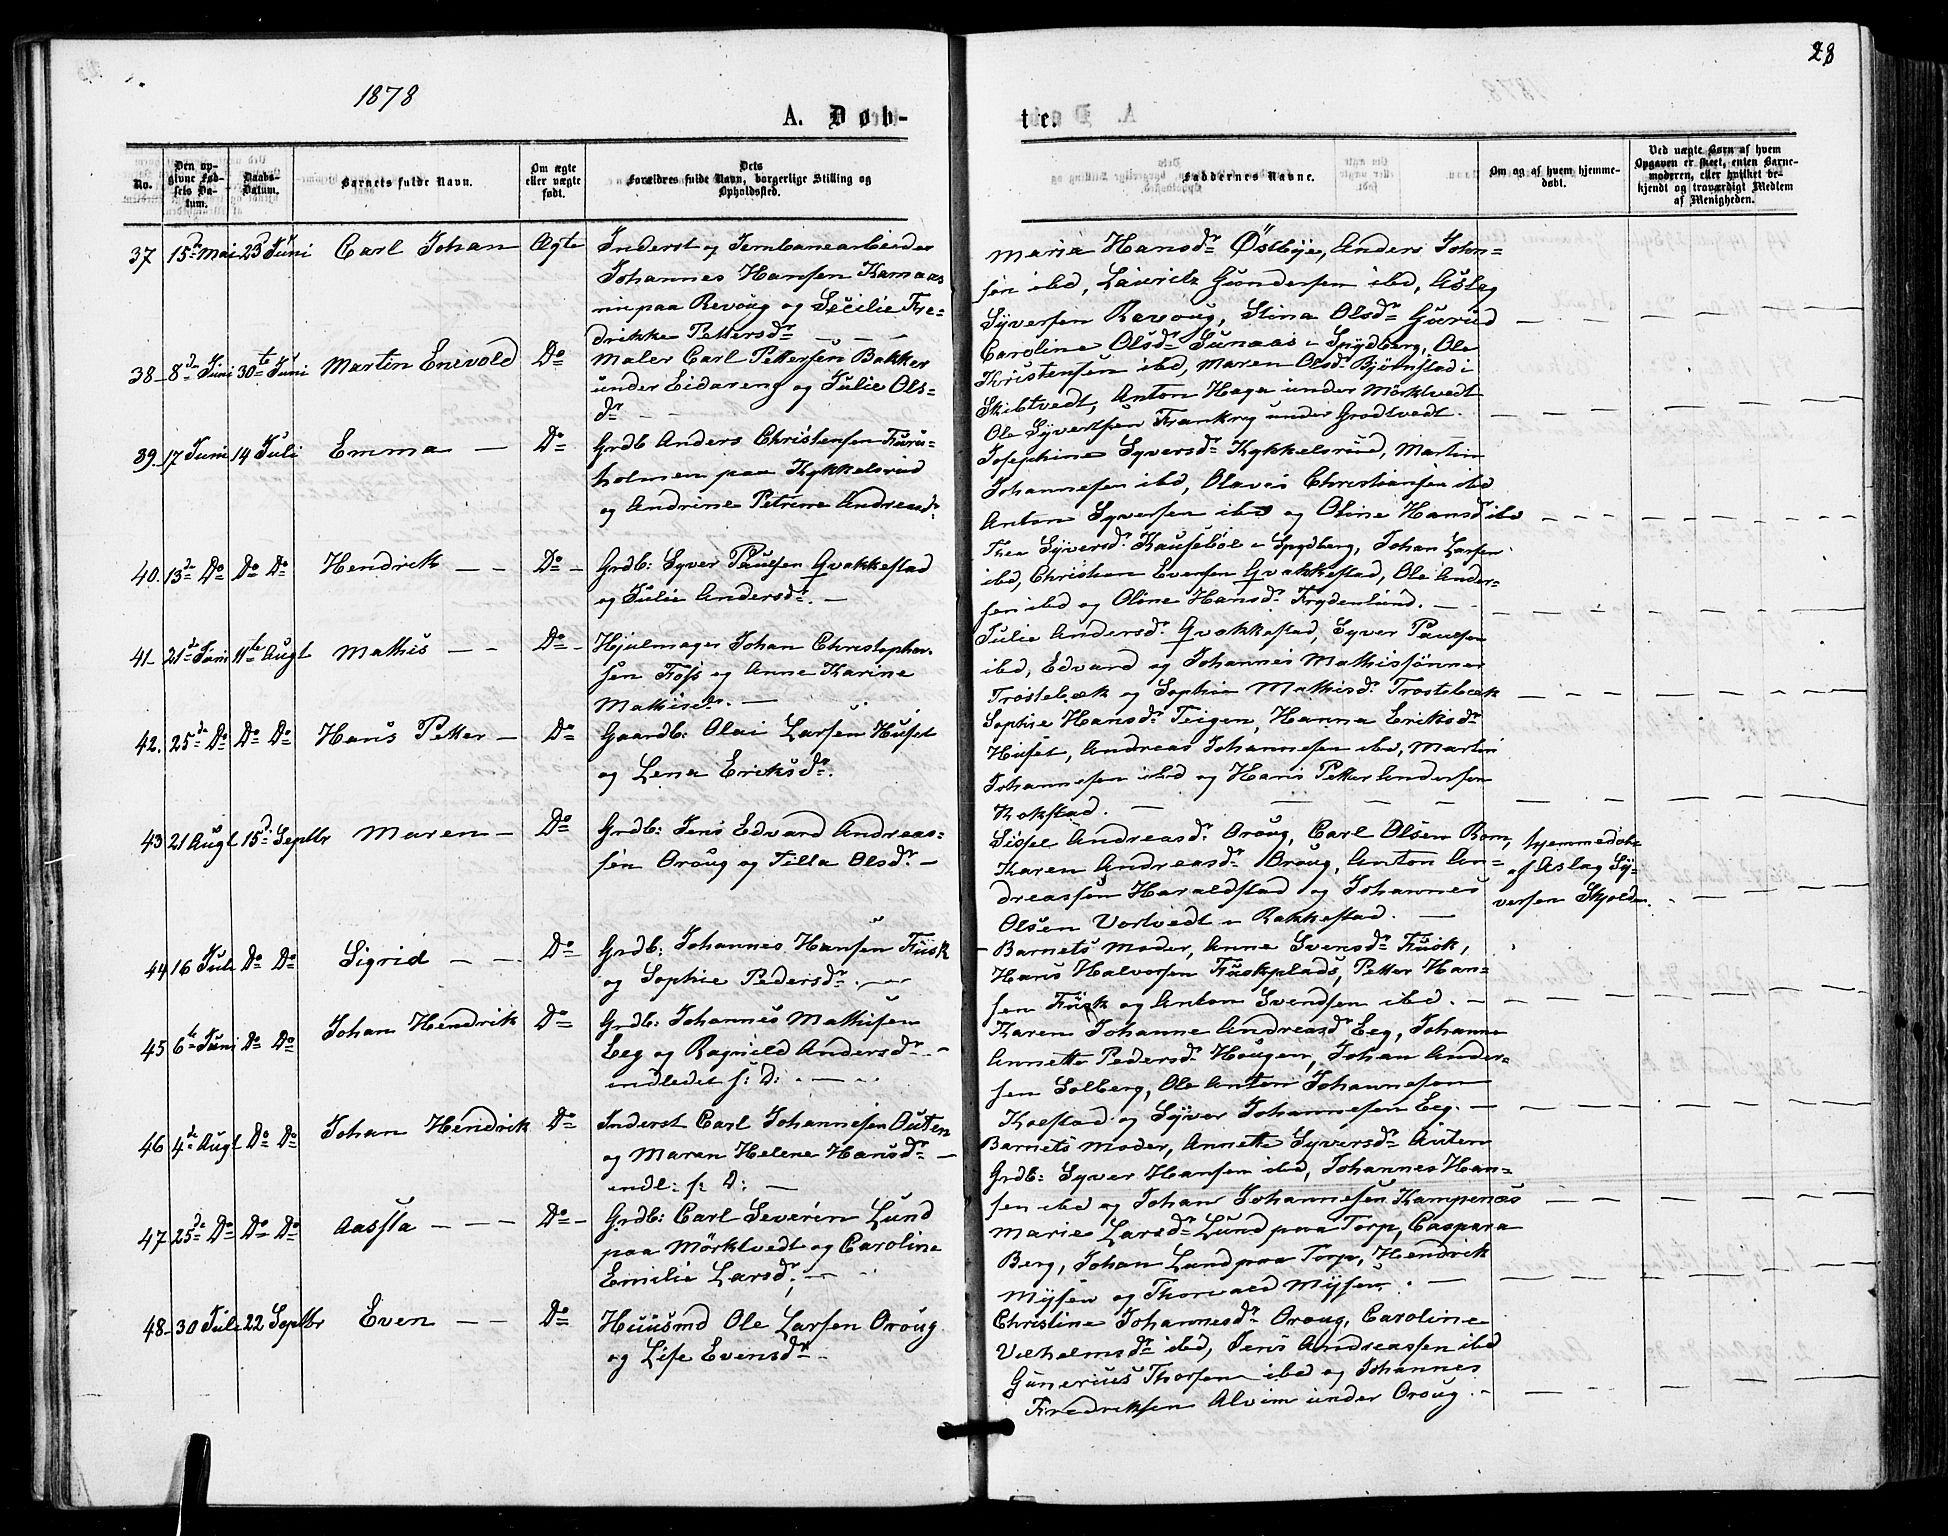 28
1878
A. Døb-
te.
No.
Den op-
givne Fød-
sels Da-
tum.
Daabs-
Datum.
Barnets fulde Navn.
Om ægte
eller uægte
født.
Dets
Forældres fulde Navn, borgerlige Stilling og
Opholdssted.
Faddernes Navne.
Om og af hvem hjemme-
døbt.
Ved uægte Børn af hvem
Opgaven er skeet, enten Barne-
moderen, eller hvilket be-
kjendt og troværdigt Medlem
af Menigheden.
37 15de Mai 23d Juni Carl Johan Ægte
Inderst og Jernbanearbeider
Johannes Hansen Kamaas
nie paa Revoug og Secilie Fre-
drikke Pettersdr
Maria Hansdr Østbye, Anders John-
sen ibd, Lauritz Gundersen ibd, Aslag
Syversen Revoug, Stina Olsdr Gurud
38 8de Juni 30te Juni Martin Enevold Do
Maler Carl Pettersen Bakker
under Eidareng og Julie Ols-
dr
Caroline Olsdr Sunaas i Spydberg, Ole
Kristensen ibd, Maren Olsdr Bjørnstad i
Skibtvedt, Anton Haga under Mörktvedt
Ole Syvertsen Frankry under Grodtvedt.
39 17 Juni 14 Juli Emma Do
Grdb Anders Christensen Furu-
holmen paa Kykkelsrud
og Andrine Petrine Andreasdr
Josephine Syversdr Kykkelsrud, Martin
Johannesen ibd, Olavis Christiansen ibd
Anton Syversen ibd og Oline Hansdr ibd
40. 13de Do Do Do Hendrik Do
Grdb: Syver Paulsen Qvakkestad
og Julie Andersdr.
Thea Syversdr Kausebøl i Spydberg, Johan Larsen
ibd, Christian Evensen Qvakkestad, Ole Ander-
sen ibd og Oline Hansdr Frydenlund.
41 21de Juni 11te Augt Mathis Do
Hjulmager Johan Christopher-
sen Foss og Anne Karine
Mathisdr.
Julie Andersdr Qvakkestad, Syver Paulsen
ibd, Edvard og Johannes Mathissønner
Trostebæk og Sophie Mathisdr Trostebæk
42. 25de Do Do Do Hans Petter Do
Gaardb: Olai Larsen Huset
og Lena Eriksdr.
Sophie Hansdr Teigen, Hanna Eriksdr
Huset, Andreas Johannesen ibd, Martin
Johannesen ibd og Hans Petter Andersen
Rokstad.
43 21 Augt 15de Septbr Maren Do
Grdb: Jens Edvard Andreas-
sen Oroug og Tilla Olsdr
Sissel Andreasdr Oroug, Carl Olsen Rom,
Karen Andreasdr Oroug, Anton An-
dreassen Haraldstad og Johannes
Olsen Vortvedt i Rakkestad.
hjemmedøbt
af Aslag Sy-
versen Skjolden.
44 16 Juli Do Do Sigrid Do
Grdb: Johannes Hansen Fusk
og Sophie Pedersdr.
Barnets Moder, Anne Svensdr Fusk,
Hans Halvorsen Fuskplads, Petter Han-
sen Fusk og Anton Svendsen ibd.
45 6te Juni Do Do Johan Hendrik Do
Grdb: Johannes Mathisen
Eeg og Ragnild Andersdr
indledet s: D:
Karen Johanne Andreasdr Eeg, Johanne
Annette Pedersdr Hougen, Johan Ander-
sen Solberg, Ole Anton Johannesen
Kolstad og Syver Johannesen Eeg.
46 4de Augt Do Do Johan Hendrik Do
Inderst Carl Johannesen Outen
og Maren Helene Hansdr
indl: s: D:
Barnets Moder, Annette Syversdr Auten
Grdb: Syver Hansen ibd, Johannes Han-
sen ibd og Johan Johannesen Kampenæs
47 25de Do Do Do Aassta Do
Grdb: Carl Severin Lund
paa Mörktvedt og Caroline
Emilie Larsdr.
Marie Larsdr Lund paa Torp, Caspara
Berg, Johan Lund paa Torp, Hendrik
Mysen og Thorvald Mysen.
48 30 Juli 22 Septbr Even Do
Huusmd Ole Larsen Oroug
og Lise Evensdr
Christine Johannesdr Oroug, Caroline
Vilhelmsdr ibd, Jens Andreassen ibd
Gunerius Thorsen ibd og Johannes
Fredriksen Alvim under Oroug.